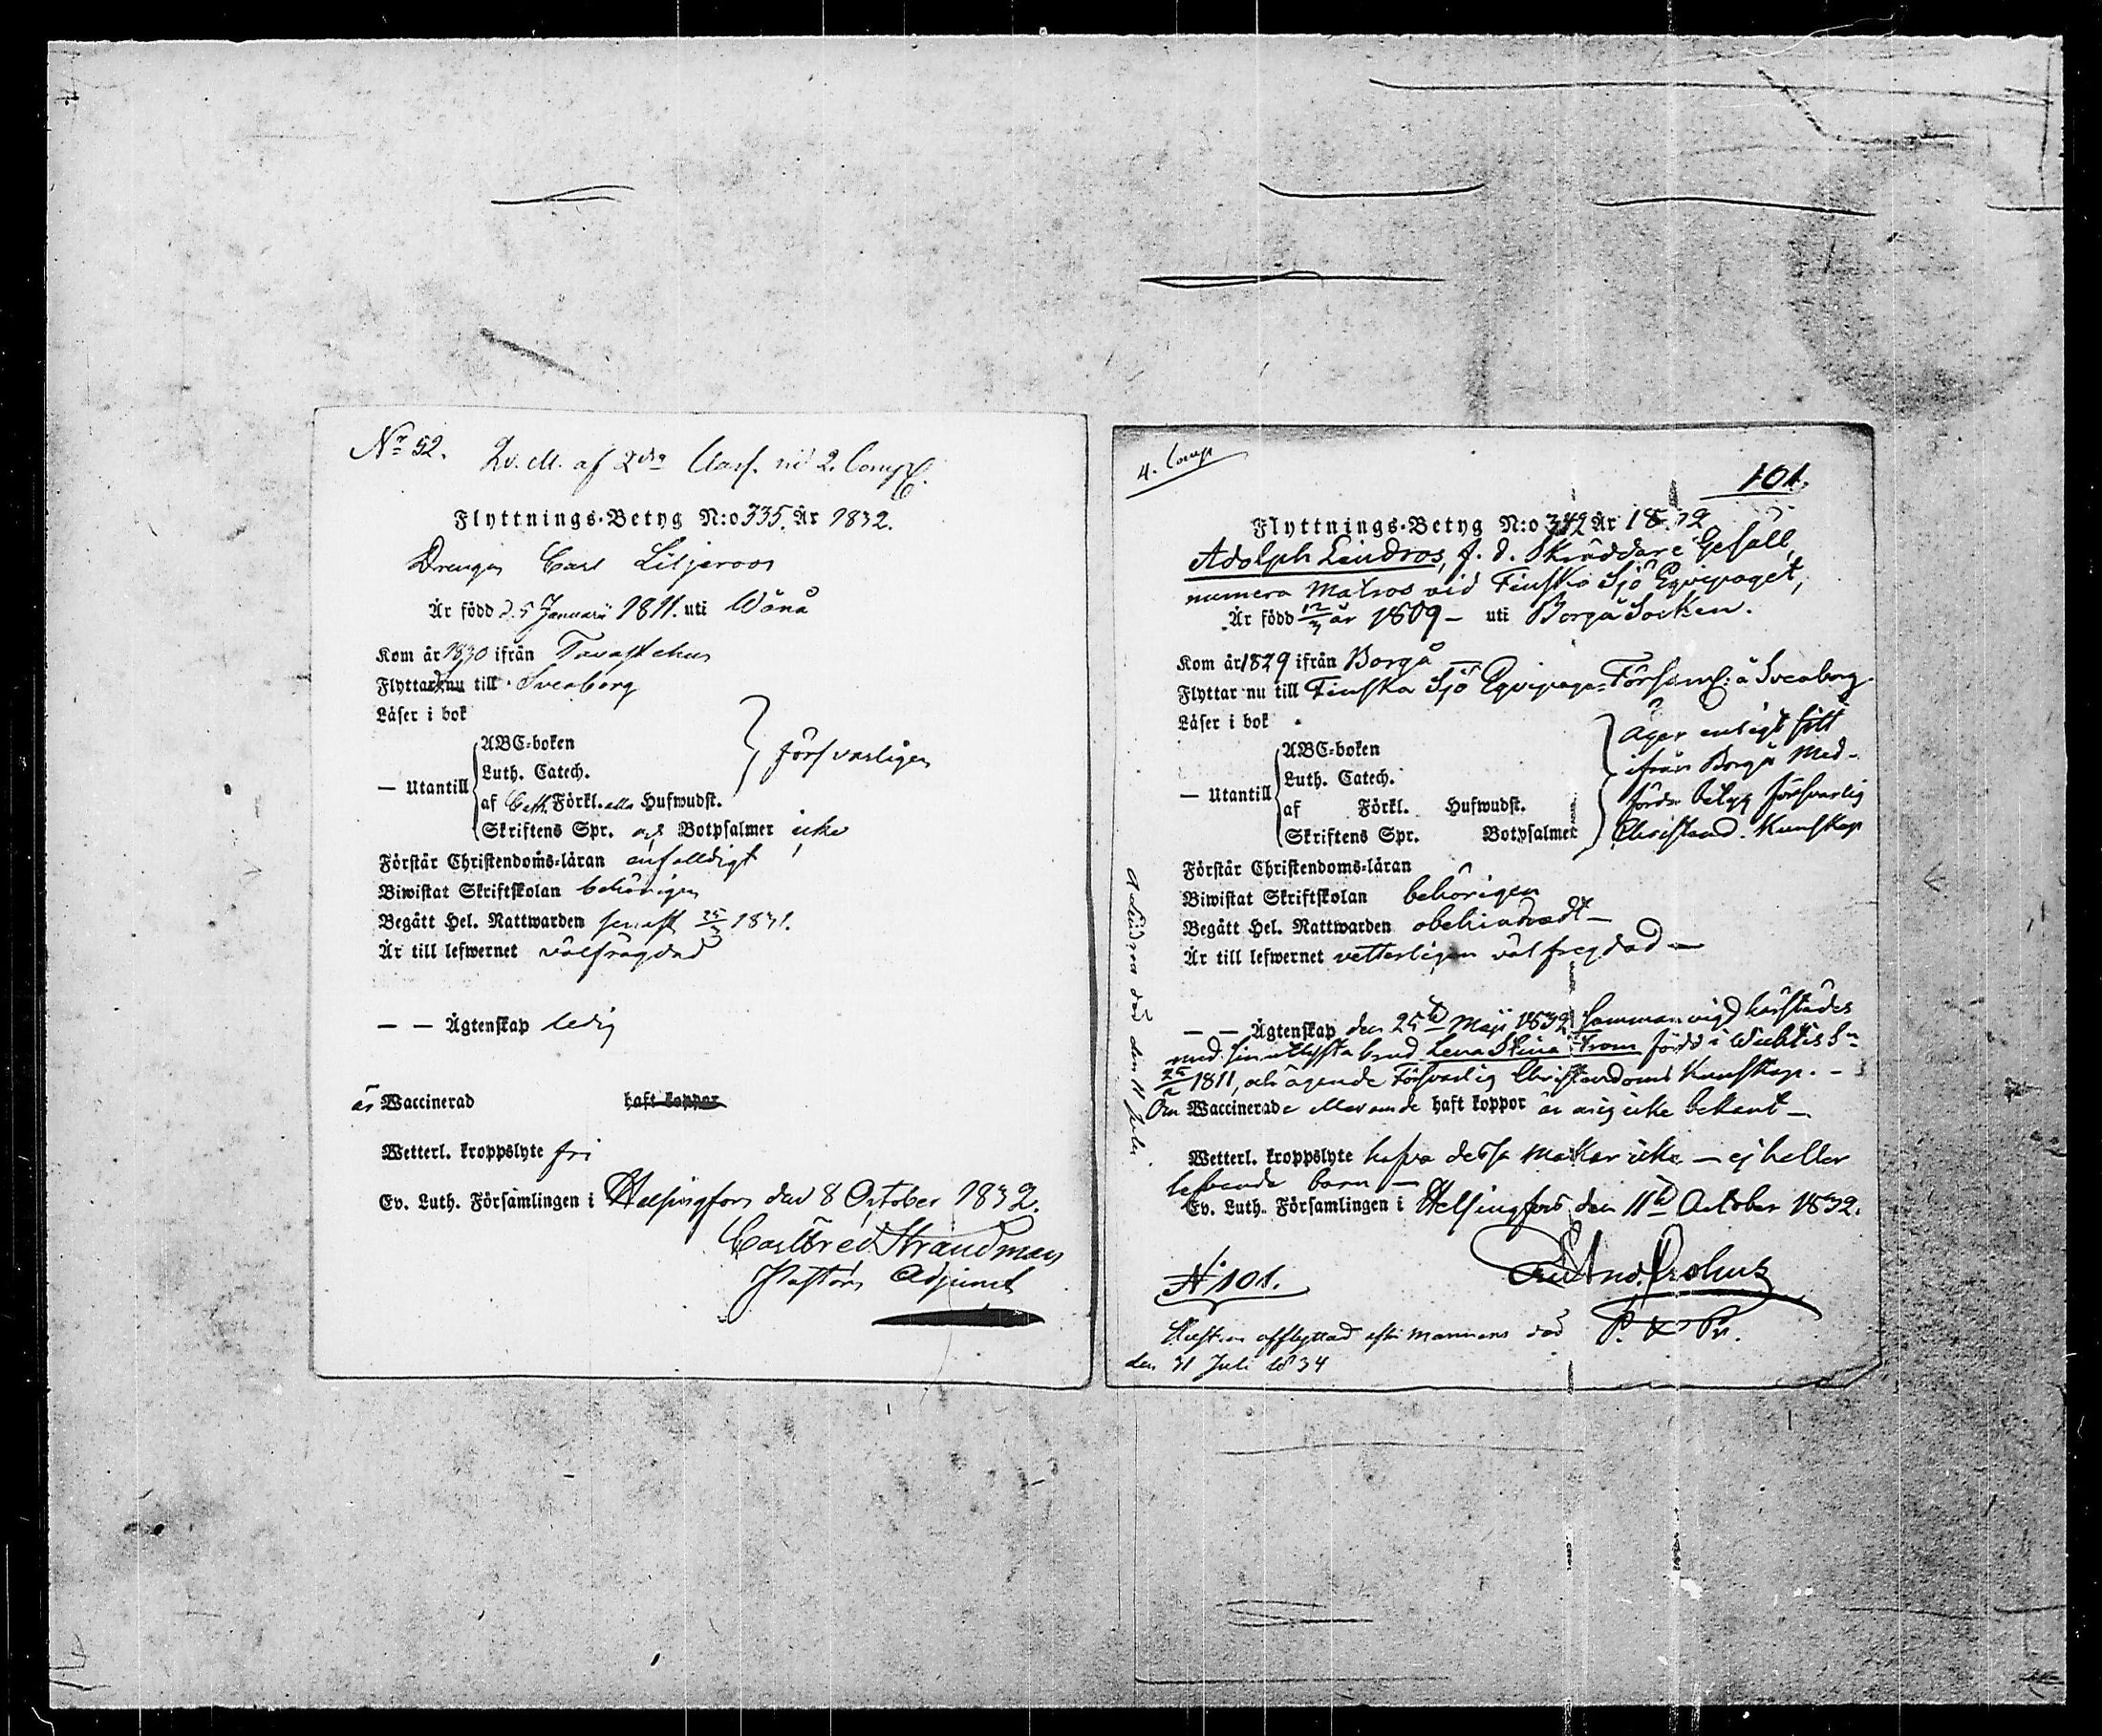 Nr 52. Qv. M. af 2dra Class. vid 2. Comp.
Flyttnings-Betyg N:o 335. År 1832.
Drengen Carl Liljeroos
Är född d. 5 Januarii 1811. uti Wånå
Kom år 1830 ifrån Tavastehus
Flyttar nu till Sveaborg
Läser i bok
— Utantill
ABC-boken
Luth. Catech.
af Cath. Förkl. alla Hufwudst.
Skriftens Spr. och Botpsalmer icke
försvarligen
Förstår Christendoms-läran enfalldigt
Biwistat Skriftskolan behörigen
Begått Hel. Nattwarden senast 25/3 1831.
Är till lefwernet välfrägdad
— — Ägtenskap ledig
är Waccinerad haft koppor
Wetterl. kroppslyte fri
Ev. Luth. Församlingen i Helsingfors den 8 October 1832.
Carl Fred Strandman
Pastors Adjunct
4. Comp
101.
Flyttnings-Betyg N:o 342 År 1832
Adolph Lindros, f. d. Skräddare Gesäll,
numera Matros vid Finska Sjö Eqvipaget,
Är född 12/3 år 1809 — uti Borgå Socken.
Kom år 1829 ifrån Borgå —
Flyttar nu till Finska Sjö Eqvipage-Församl: å Sveaborg.
Läser i bok
— Utantill
ABC-boken
Luth. Catech.
af Förkl. Hufwudst.
Skriftens Spr. Botpsalmer
Äger enligt sitt
ifrån Borgå med-
förde betyg försvarlig
Christend. Kunskap
Förstår Christendoms-läran
Biwistat Skriftskolan behörigen
Begått Hel. Nattwarden obehindradt —
Är till lefwernet vetterligen välfregdad —
— — Ägtenskap den 25te Maji 1832 sammanvigd härstädes
med sin utlysta brud Lena Stina Fram född i Wichtis Sn
25/ 1811, och ägende försvarlig Christendoms Kunskap. —
Om Waccinerade eller annde haft koppor är mig icke bekant —
Wetterl. kroppslyte hafva dessa makar icke — ej heller
lefvande barn —
Ev. Luth. Församlingen i Helsingfors den 11te October 1832.
P. & Pr.
N:o 101.
Hustrun afflyttad efter mannens död
den 31 Juli 1834
A Lindros död den 11 Juli